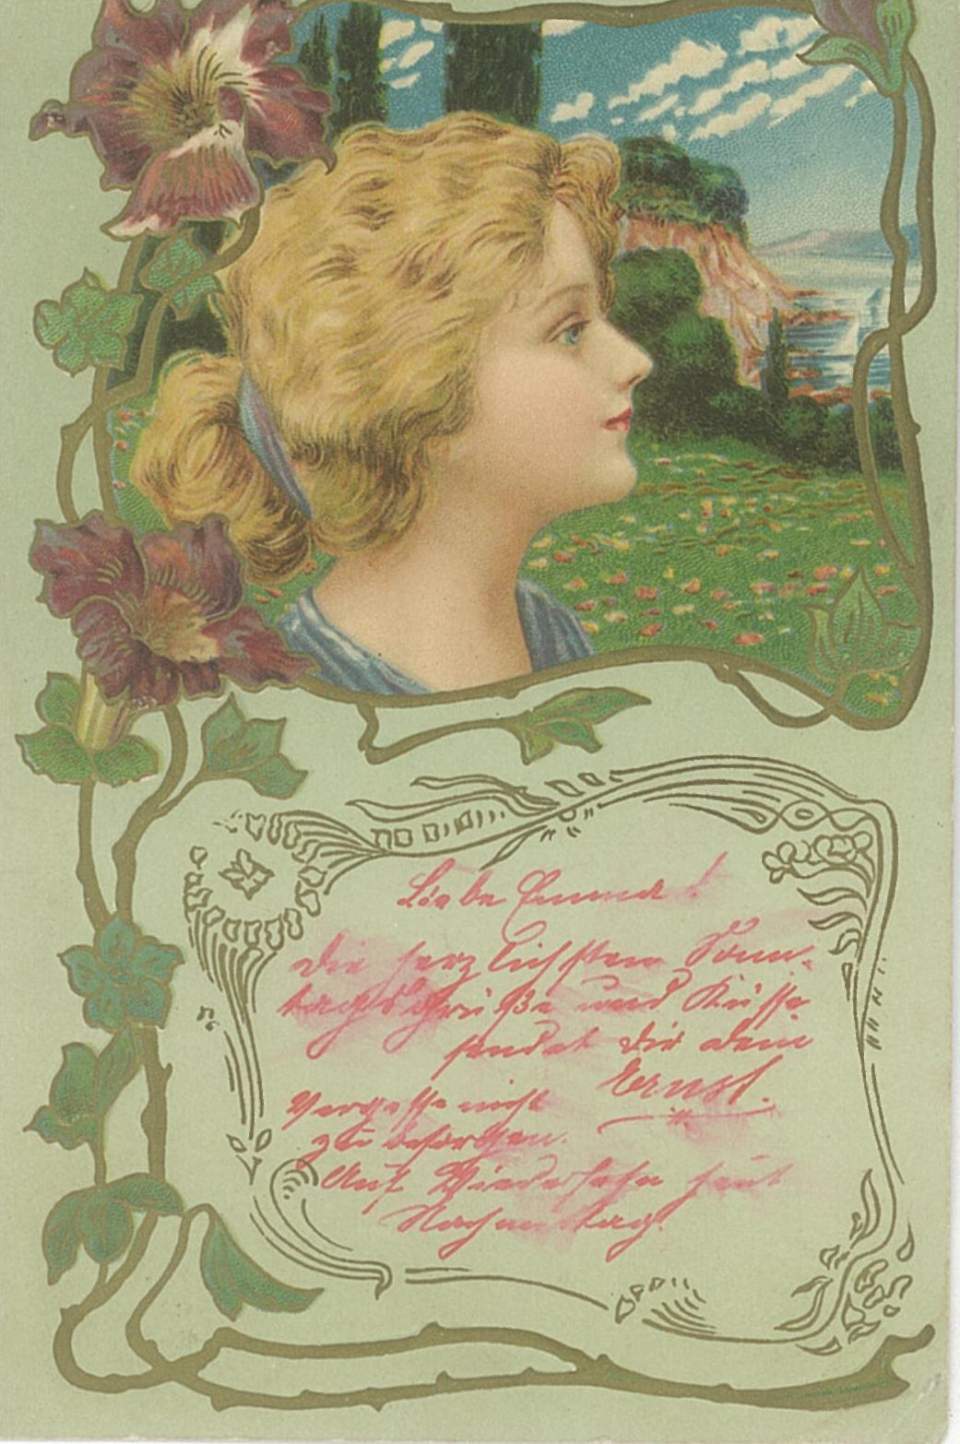 Liebe Emma!
Die herzlichsten Sonn-
tagsgrüße und Küsse
sendet Dir dein
Ernst.
Vergesse nicht
zu besorgen.
Auf Wiedersehn heut
Nachmittag.